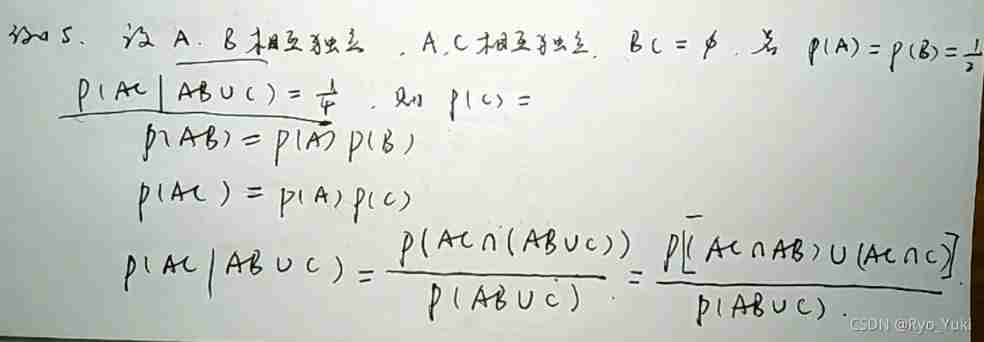 例5. 设 A. B 相互独立, A, C 相互独立. BC = φ. 若 P(A) = P(B) = 1/2
P(AC | AB ∪ C) = 1/4, 则 P(C) =
P(AB) = P(A) P(B)
P(AC) = P(A) P(C)
P(AC | AB ∪ C) = P(AC ∩ (AB ∪ C)) / P(AB ∪ C) = P[(AC ∩ AB) ∪ (AC ∩ C)] / P(AB ∪ C).
CSDN @Ryo_Yuki